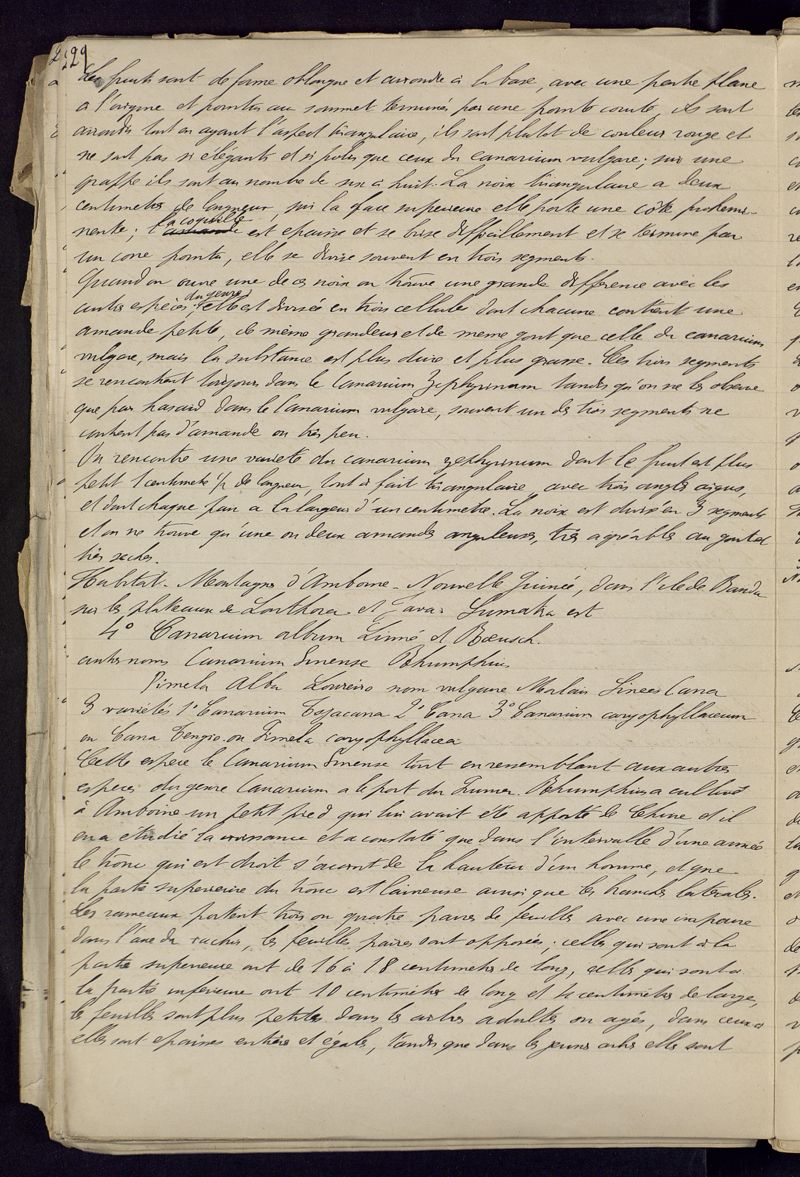 229
les fruits sont de forme oblongue et arrondie à la base, avec une partie plane
à l'origine et pointus au sommet terminés par une pointe courte, ils sont
arrondis tout en ayant l'aspect triangulaire, ils sont plutot de couleur rouge et
ne sont pas si élégants et si polis que ceux du canarium vulgare; sur une
grappe ils sont au nombre de six à huit. La noix triangulaire a deux
centimetres de longueur, sur la face superieure elle porte une côte proemi-
nente; la coquille est epaisse et se brise difficilement et se termine par
un cone pointu, elle se divise souvent en trois segments.
Quand on ouvre une de ces noix on trouve une grande difference avec les
autres espèces du genre: elle est divisée en trois cellules dont chacune contient une
amande petite, de même grandeur et de meme gout que celle du canarium
vulgare, mais la substance est plus dure et plus grasse. Ces trois segments
se rencontrent toujours dans le Canarium Zephyrinum tandis qu'on ne les observe
que par hasard dans le Canarium vulgare, souvent un des trois segments ne
contient pas d'amande ou très peu.
On rencontre une varieté du canarium zephyrinum dont le fruit est plus
petit 1 centimetre 1/2 de longueur, tout à fait triangulaire, avec trois angles aigus,
et dont chaque pan a la largeur d'un centimetre. La noix est divisée en 3 segments
et on ne trouve qu'une ou deux amandes anguleuses, très agréables au gout et
très seches.
Habitat. Montagnes d'Amboine - Nouvelle Guinée, dans l'ile de Banda
sur les plateaux de Lonthora et Java. Sumatra est
4° Canarium album Linné et Rœusch.
autres noms Canarium Sinense Rhumphius
Pimela Alba Loureiro nom vulgaire Malais Sinees Cana
3 variétés 1° Canarium Tsjacana 2° Cana 3° Canarium caryophyllaceum
ou Cana Tengio ou Pimela caryophyllacea
Cette espece le Canarium Sinense tout en ressemblant aux autres
especes du genre Canarium a le port du Rhumphius a cultivé
à Amboine un petit pied qui lui avait été apporté de Chine et il
en a etudié la croissance et a constaté que dans l'intervalle d'une année
le tronc qui est droit s'accroit de la hauteur d'un homme, et que
la partie superieure du tronc est laineuse ainsi que les branches laterales.
Les rameaux portent trois ou quatre paires de feuilles avec une impaire
dans l'axe du rachis, les feuilles paires sont opposées; celles qui sont à la
partie superieure ont de 16 à 18 centimetres de long, celles qui sont à
la partie inférieure ont 10 centimètres de long et 4 centimètres de large,
les feuilles sont plus petites dans les arbres adultes ou agés, dans ceux ci
elles sont epaisses entières et égales, tandis que dans les jeunes arbres elles sont